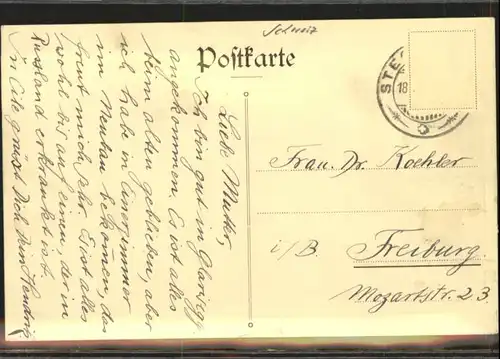 Schweiz
Postkarte
STE
18
Liebe Mutter,
Ich bin gut in Glarisegg
angekommen. Es ist alles
beim alten geblieben, aber
ich habe in Einerzimmer
im Neubau bekommen, das
freut mich sehr. Es ist alles
wohl bis auf einen, der in
Russland erkrankt ist.
In Eile grüsst Dich Dein Hendrik
Frau. Dr. Koehler
i/B. Freiburg
Mozartstr. 23.